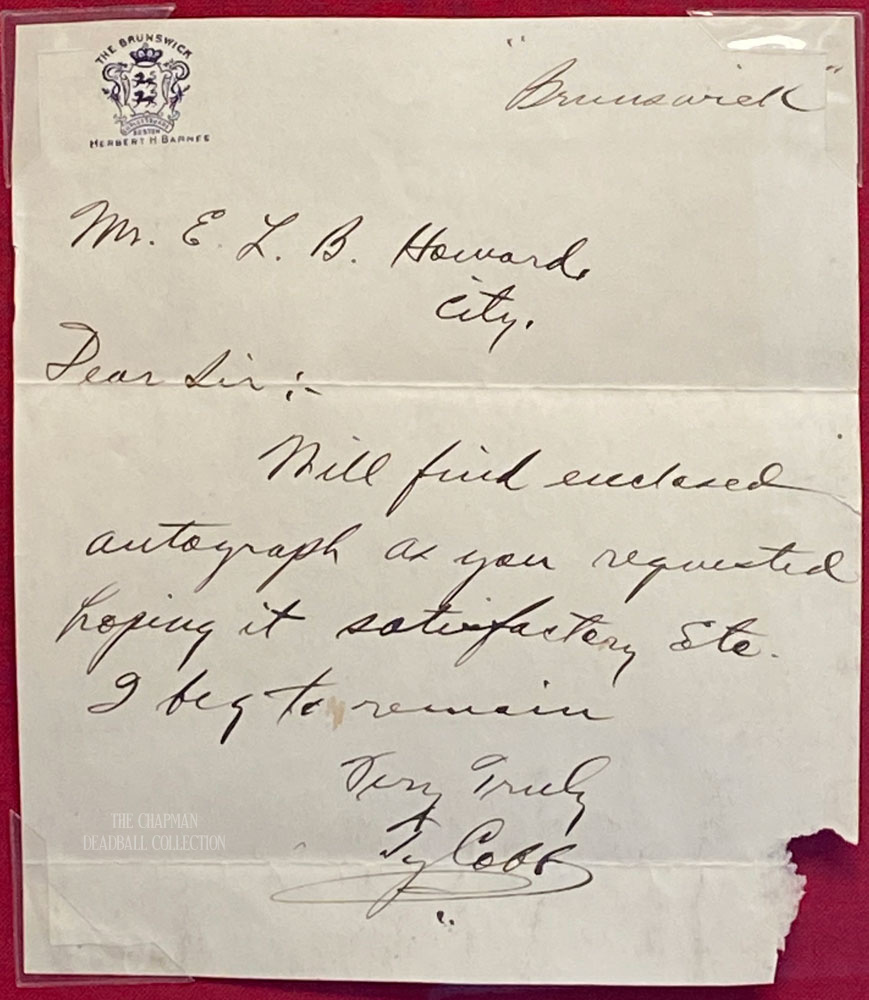 THE BRUNSWICK
BOSTON
HERBERT H BARNES
"Brunswick"
Mr. E. L. B. Howard.
City.
Dear Sir :-
Will find enclosed
autograph as you requested
hoping it satisfactory Etc.
I beg to remain
Very Truly
Ty Cobb
THE CHAPMAN
DEADBALL COLLECTION